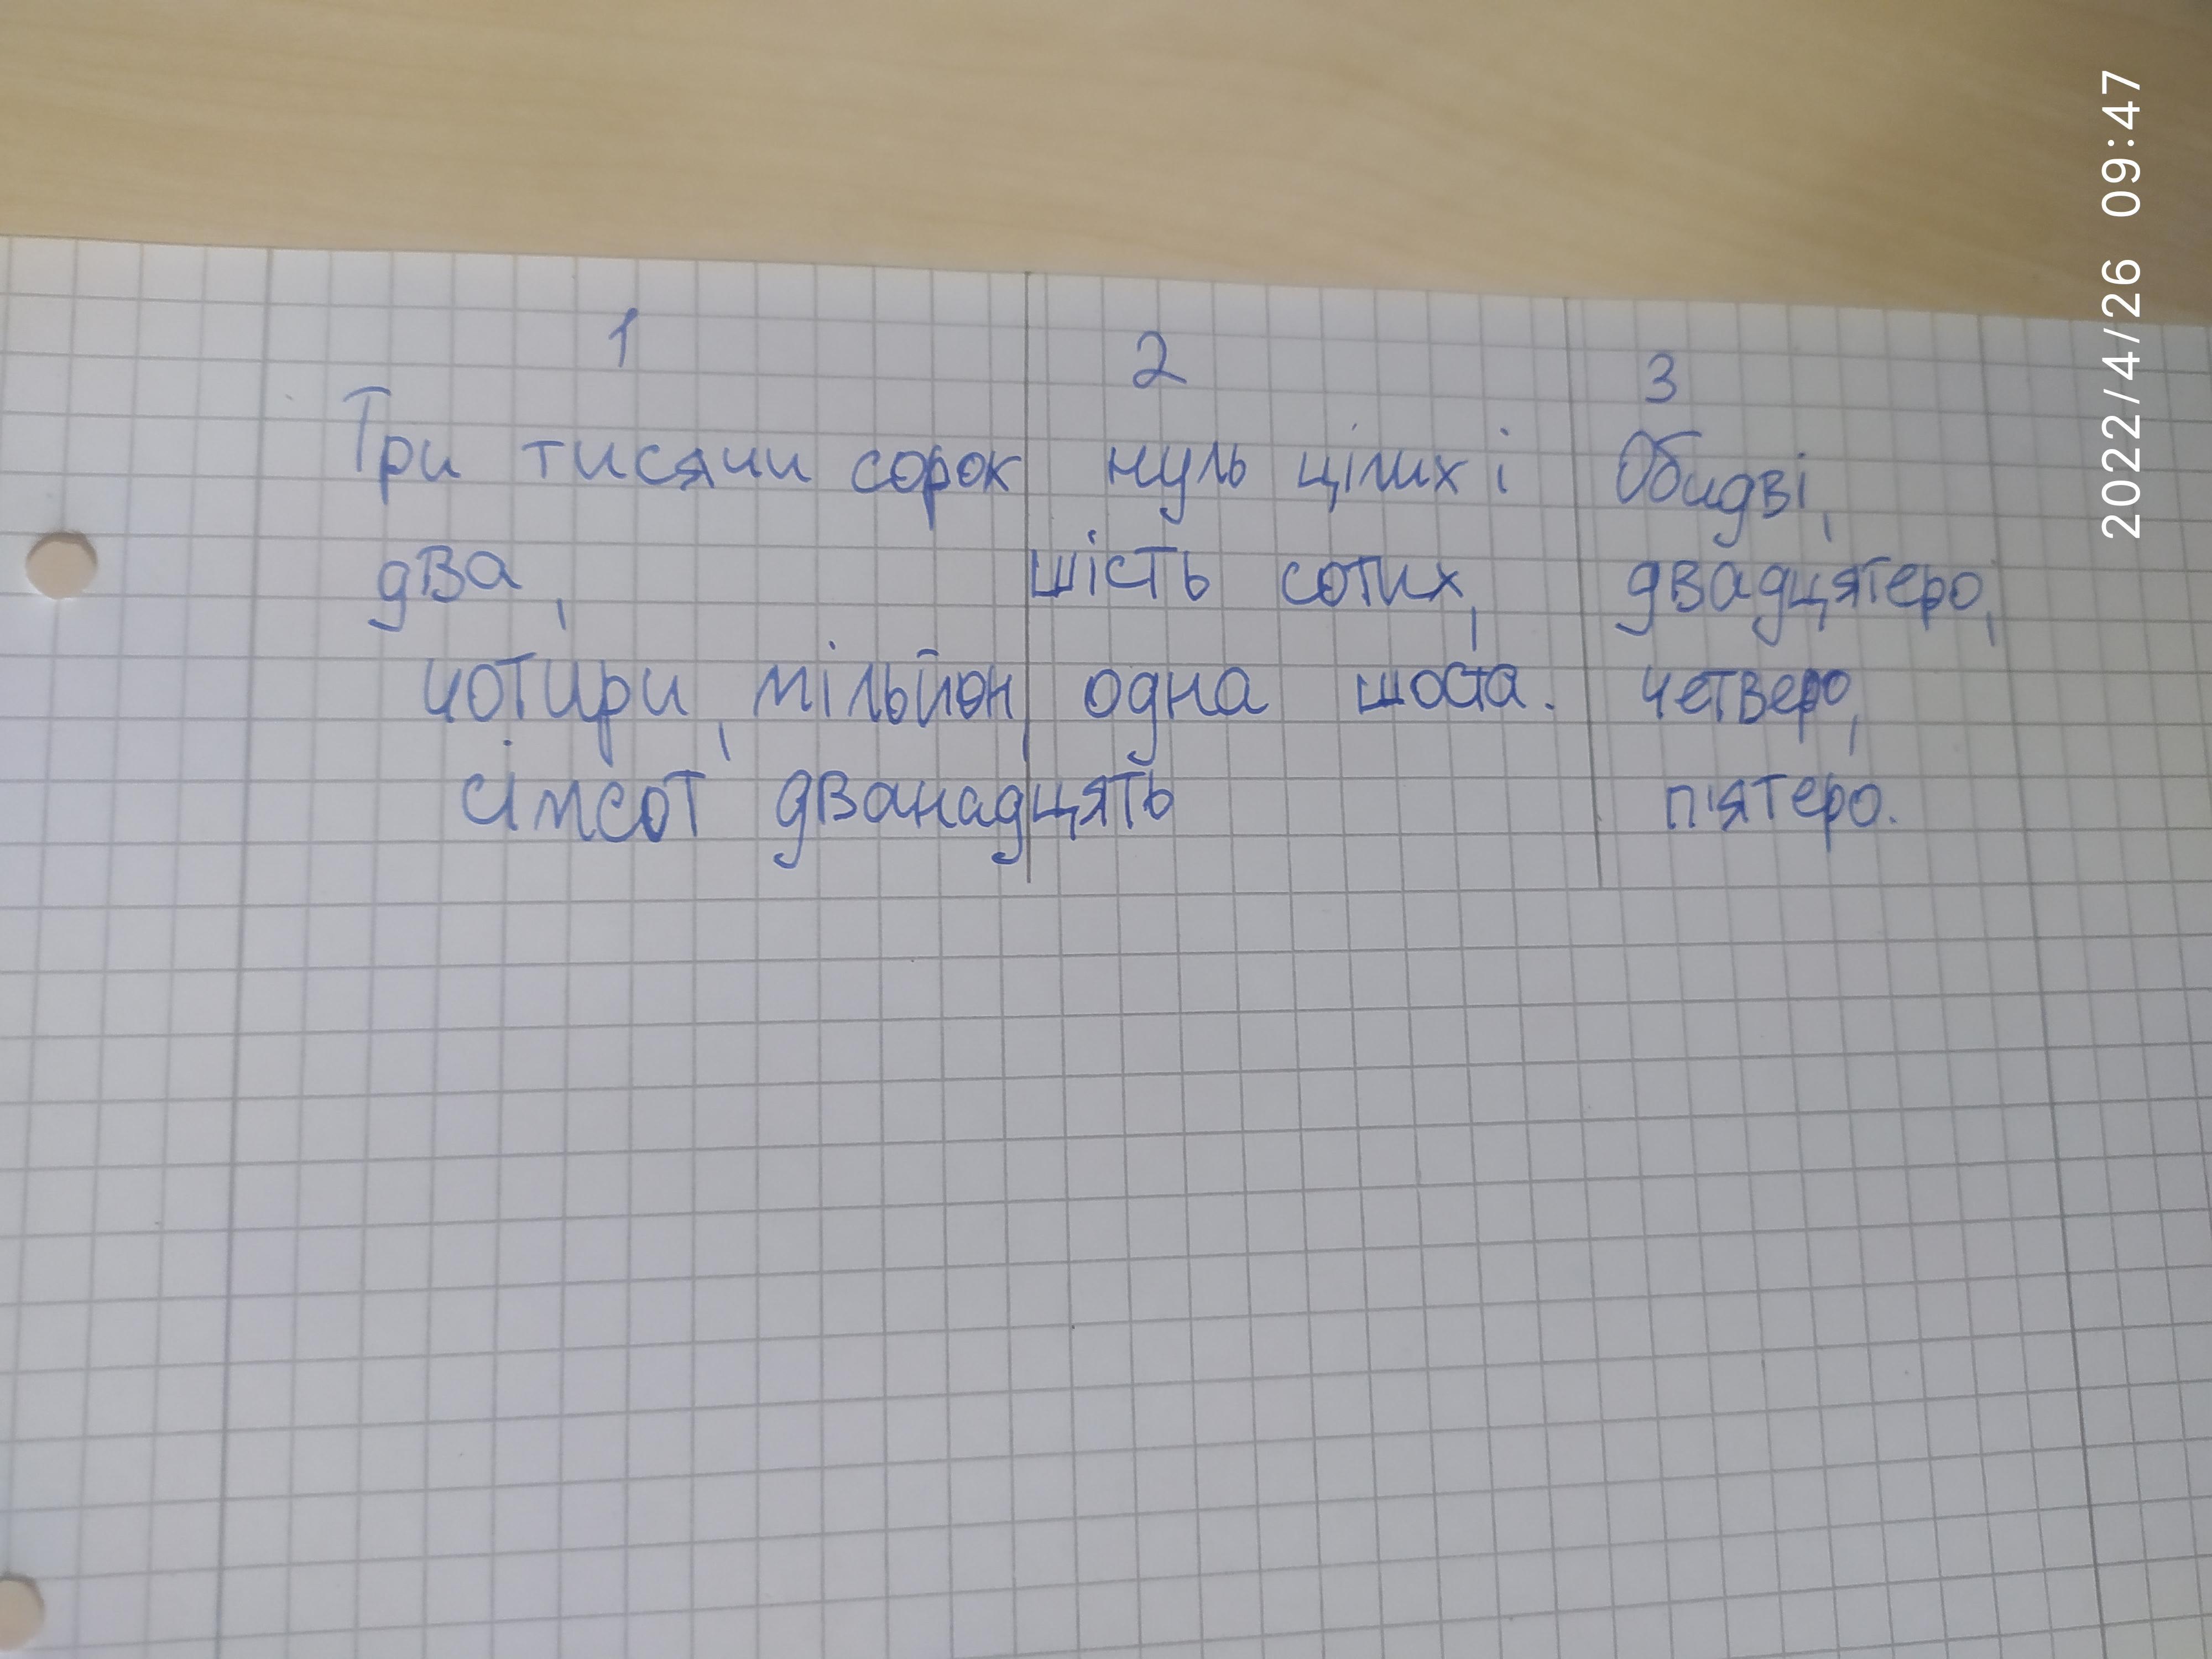 1 2 3
Три тисячи сорок нуль цілих і Обидві,
два, шість сотих, двадцятеро,
чотири, мільйон, одна шоста. четверо,
сімсот дванадцять п'ятеро.
2022/4/26 09:47